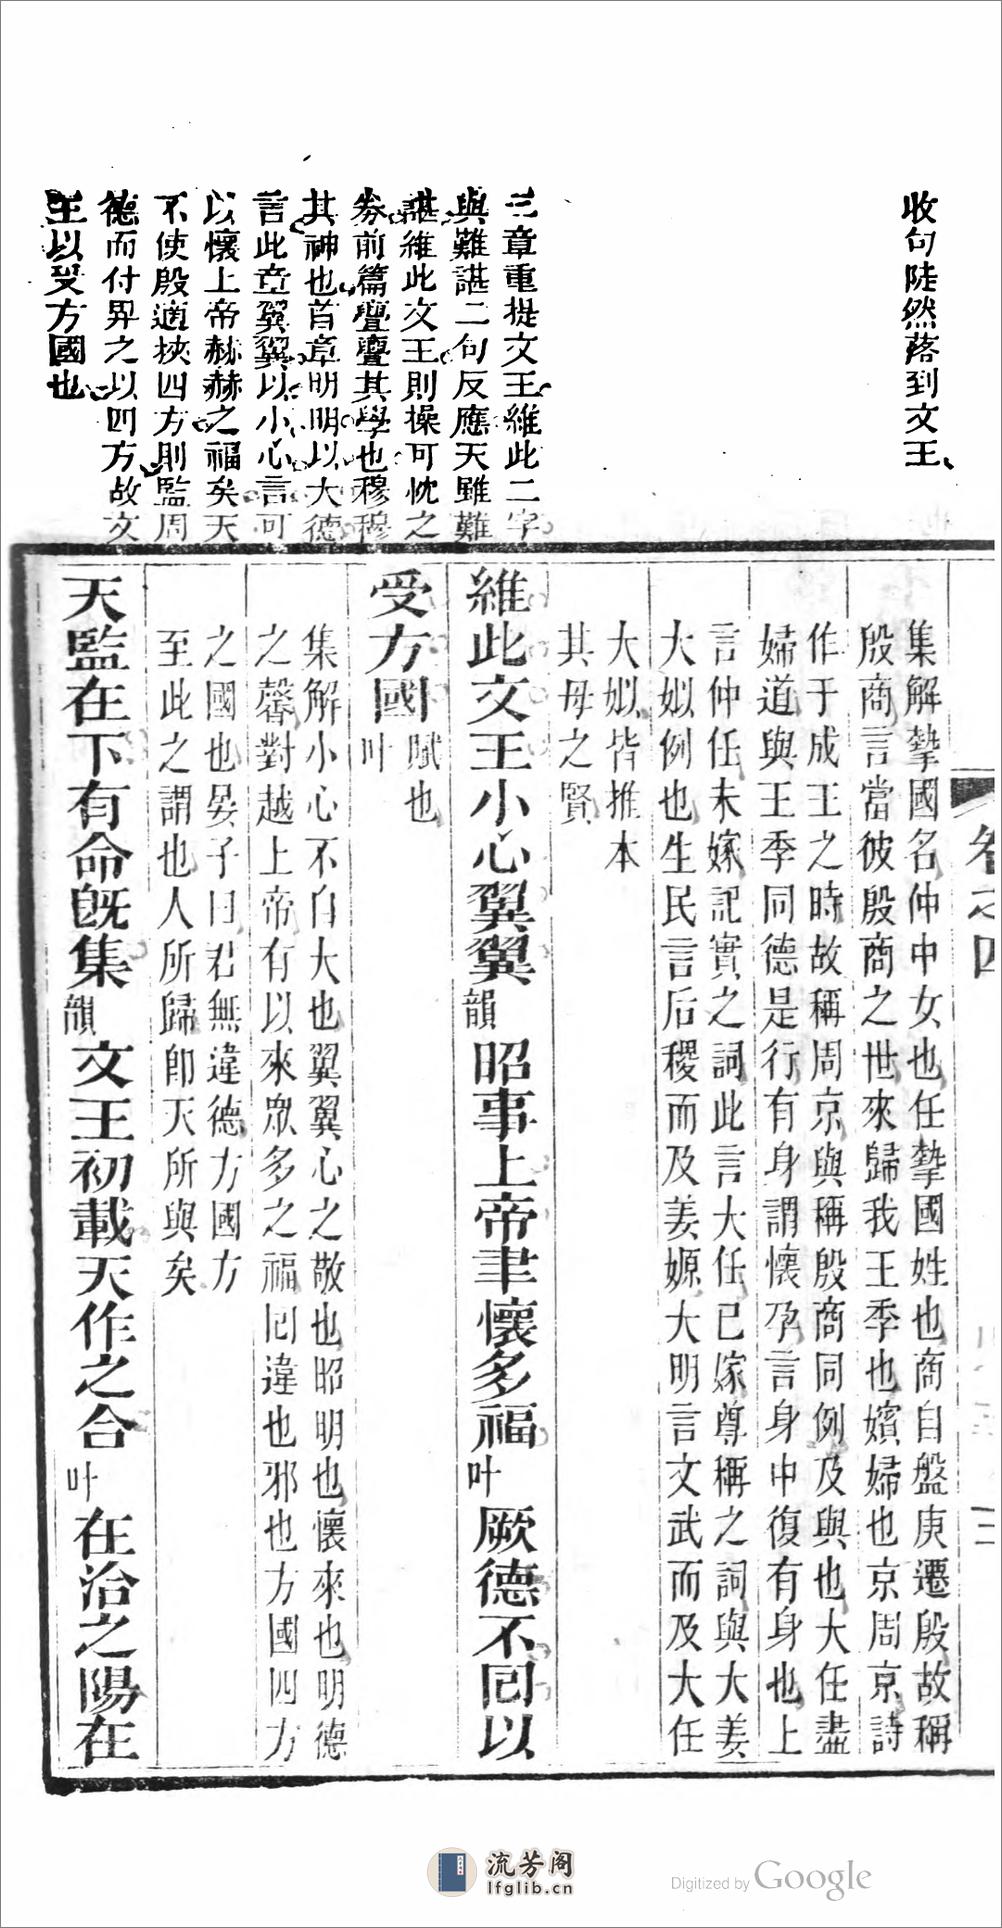 收句陡然落到文王
三章重提文王維此二字
與難諶二句反應天雖難
諶維此文王則操可忱之
券前篇亹亹其學也穆穆
其神也首章明明以大德
言此章翼翼以小心言可
以懷上帝赫赫之福矣天
不使殷適挾四方則監周
德而付畀之以四方故文
王以受方國也
卷之四
三
集解摯國名仲中女也任摯國姓也商自盤庚遷殷故稱
殷商言當彼殷商之世來歸我王季也嬪婦也京周京詩
作于成王之時故稱周京與稱殷商同例及與也大任盡
婦道與王季同德是行有身謂懷孕言身中復有身也上
言仲任未嫁記實之詞此言大任已嫁尊稱之詞與大姜
大姒例也生民言后稷而及姜嫄大明言文武而及大任
大姒皆推本
其母之賢
維此文王小心翼翼韻昭事上帝聿懷多福叶厥德不回以
受方國叶賦也
集解小心不自大也翼翼心之敬也昭明也懷來也明德
之馨對越上帝有以來眾多之福回違也邪也方國四方
之國也晏子曰君無違德方國方
至此之謂也人所歸即天所與矣
天監在下有命既集韻文王初載天作之合叶在洽之陽在
流芳阁
lfglib.cn
Digitized by Google